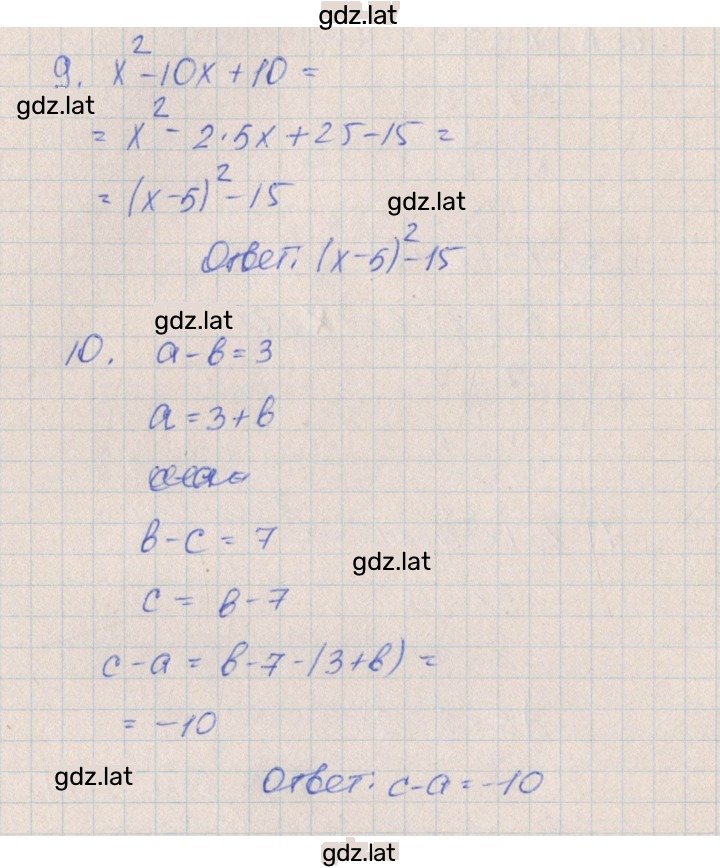 gdz.lat
9. x² - 10x + 10 =
gdz.lat
= x² - 2·5x + 25 - 15 =
= (x - 5)² - 15
gdz.lat
Ответ: (x - 5)² - 15
gdz.lat
10. a - b = 3
a = 3 + b
b - c = 7
gdz.lat
c = b - 7
c - a = b - 7 - (3 + b) =
= -10
gdz.lat
Ответ: c - a = -10
gdz.lat